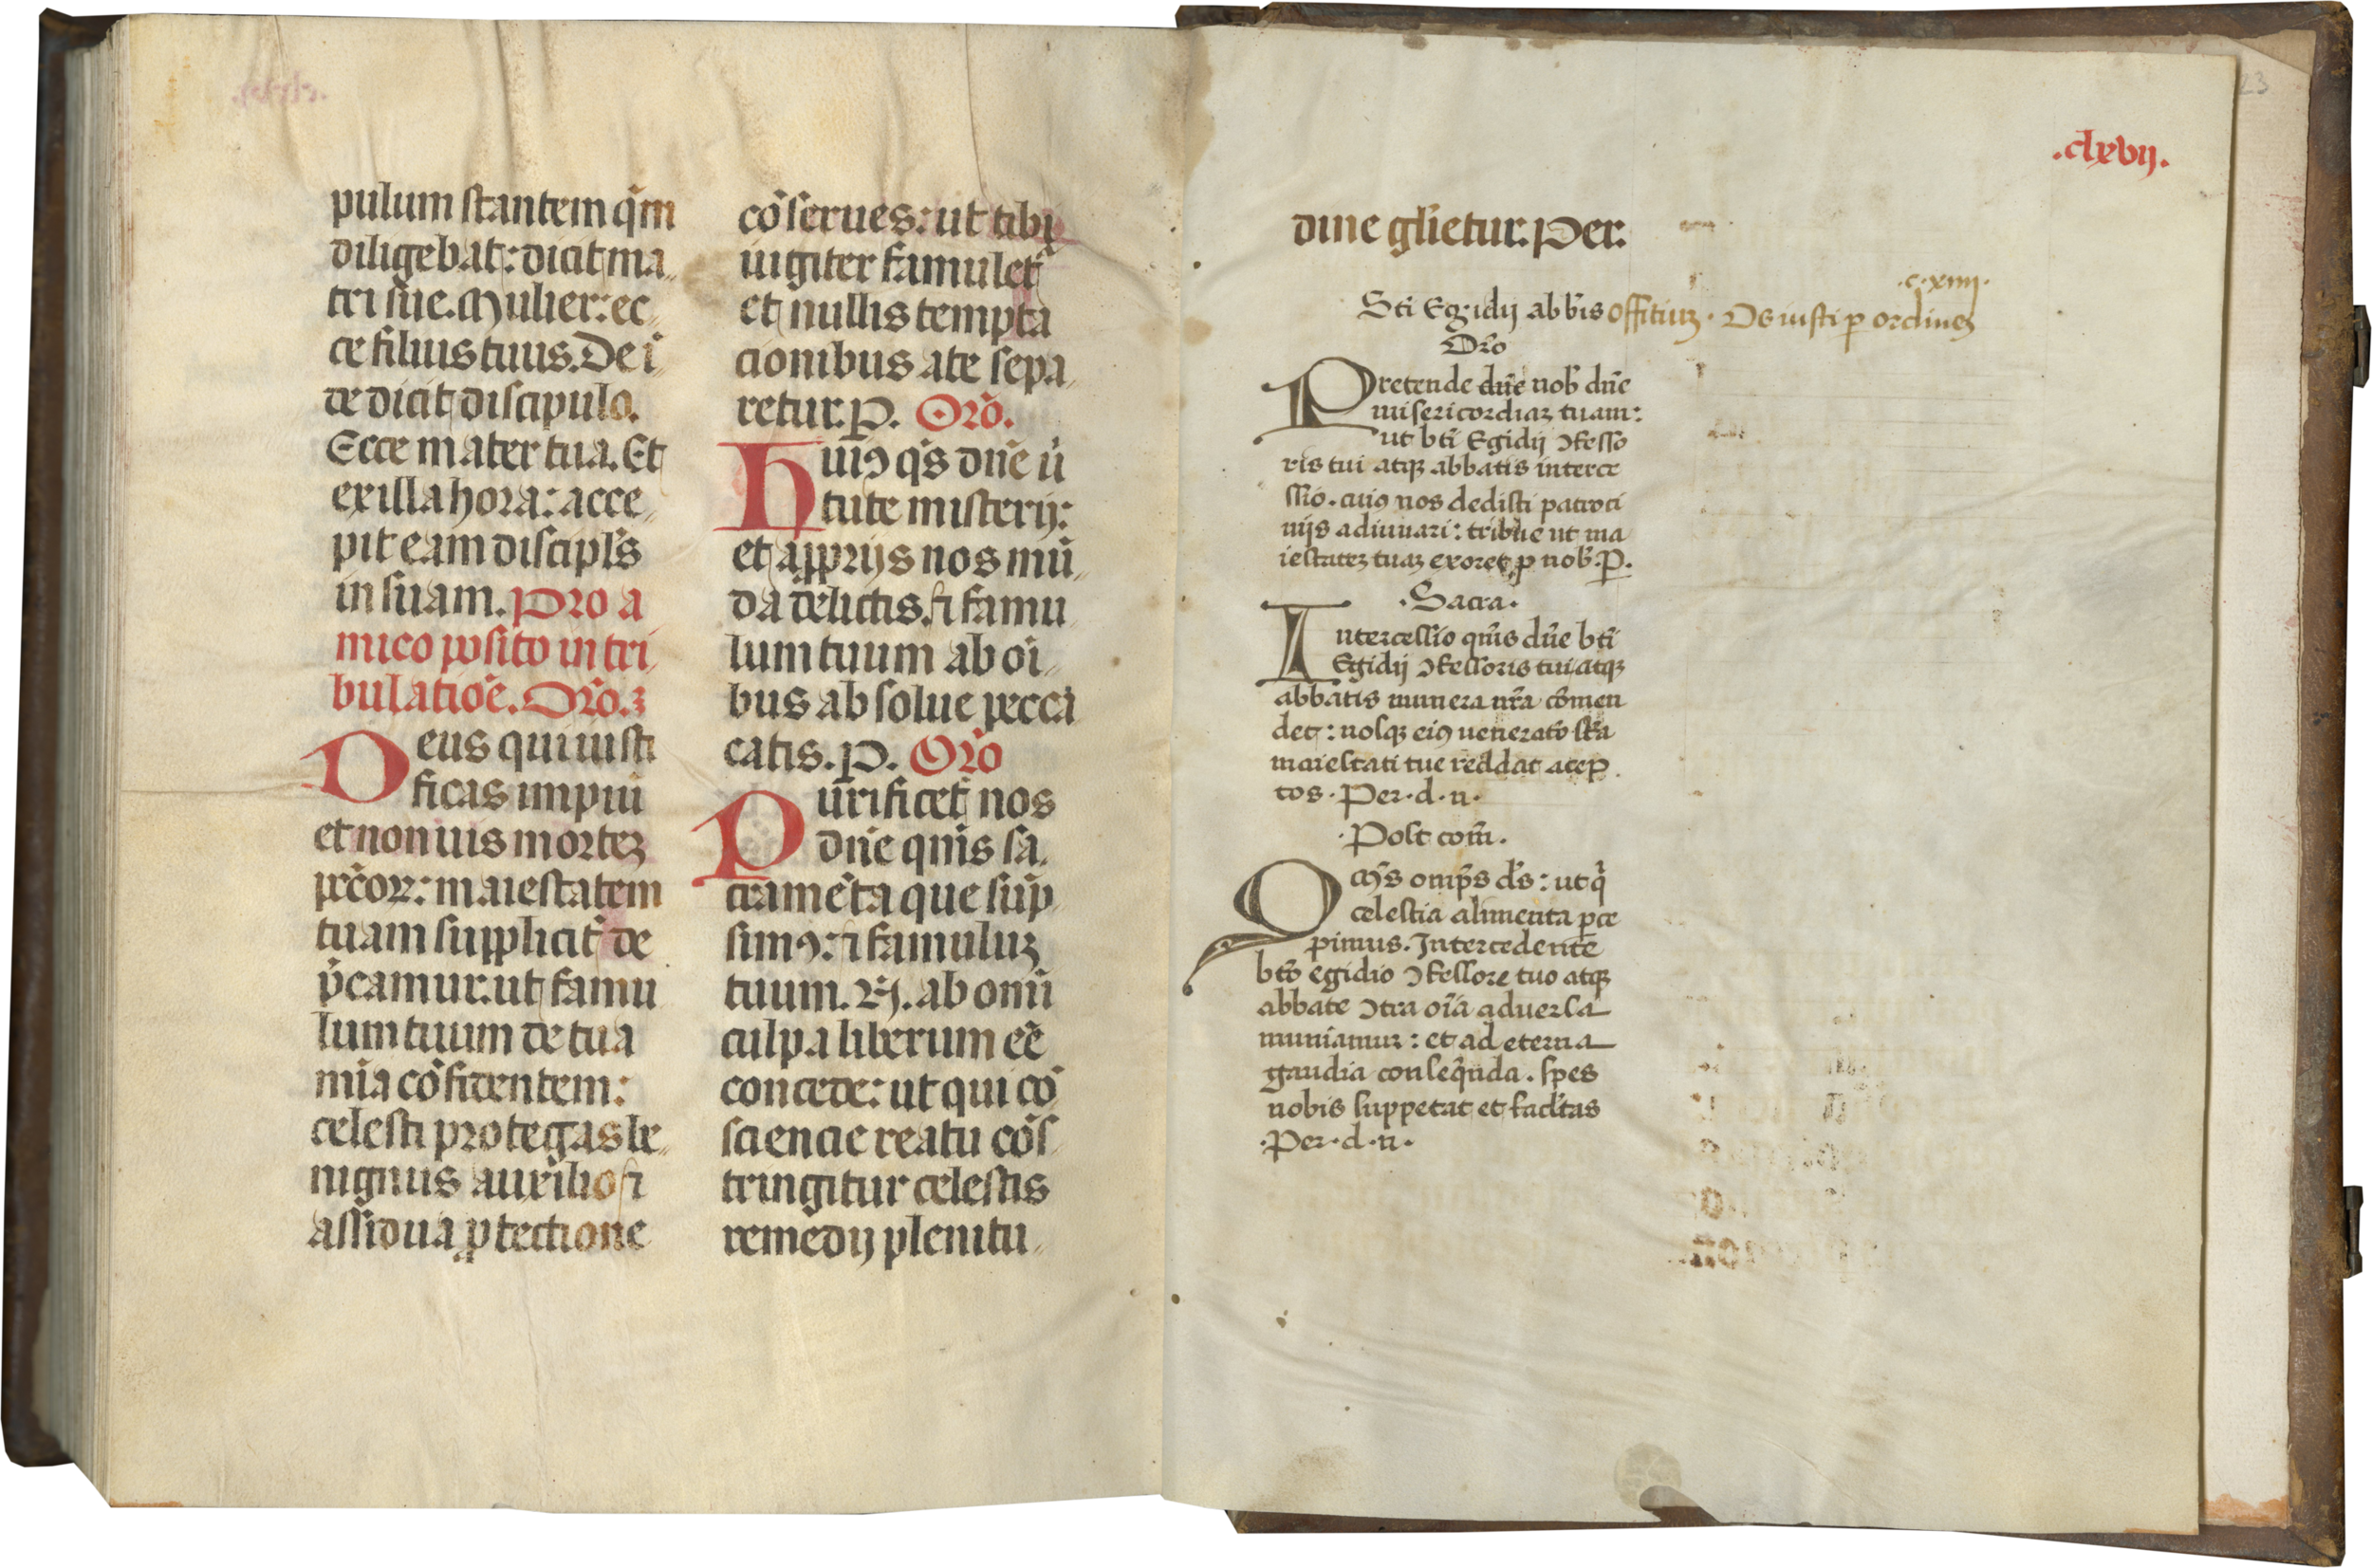 pulum stantem q̄m
diligebat: dicit ma
tri sue. Mulier: ec
ce filius tuus. De ī
de dicit discipulo.
Ecce mater tua. Et
ex illa hora: acce
pit eam discipl's
in suam. Pro a
mico posito in tri
bulatiōe. Orō.
Deus qui iusti
ficas impiū
et non uis mortez
pctōꝝ: maiestatem
tuam supplicit̄ de
p̄camur. ut famu
lum tuum de tua
mīa cōfidentem:
celesti protegas be
nignus auxilio ⁊
assidua ꝓtectione
cōserues: ut tibi
iugiter famulet̄
et nullis tempta
cionibus a te sepa
retur. P. Orō.
Huiꝰ q̄s dn̄e ū
tute misterij:
et a ꝓprijs nos mū
da delictis. ⁊ famu
lum tuum ab oī
bus absolue pecca
catis. P. Orō
Purificet nos
dn̄e qm̄s sa
cramēta que sūp
simꝰ: ⁊ famuluz
tuum. N. ab omī
culpa liberum eē
concede: ut qui cō
sciencie reatu cōs
tringitur celestis
remedij plenitu
.clxvij.
dine gl'ietur. Per.
.c.xiiii.
Sti Egidij abb̄is offitiuz. Os iusti p ordinez
Orō
Pretende dn̄e nob̄ dn̄e
misericordiaz tuam:
ut bt̄i Egidij ↄfesso
ris tui atqꝫ abbatis interce
ssio. cuiꝰ nos dedisti patroci
nijs adiuuari: tribue ut ma
iestatez tuaz exoret p nob̄. P.
.Sacra.
Intercessio qm̄s dn̄e bt̄i
Egidij ↄfessoris tui atqꝫ
abbatis munera nr̄a cōmen
det: nosqꝫ eiꝰ ueneratō sc̄a
maiestati tue reddat acep
tos. Per. d. n.
.Post com̄.
Qm̄s omp̄s ds̄: ut q̄
celestia alimenta pce
pimus. Intercedente
bt̄o egidio ↄfessore tuo atqꝫ
abbate ↄtra oīa aduersa
muniamur: et ad eterna
gaudia conseq̄nda. spes
nobis suppetat et facl'tas
.Per. d. n.